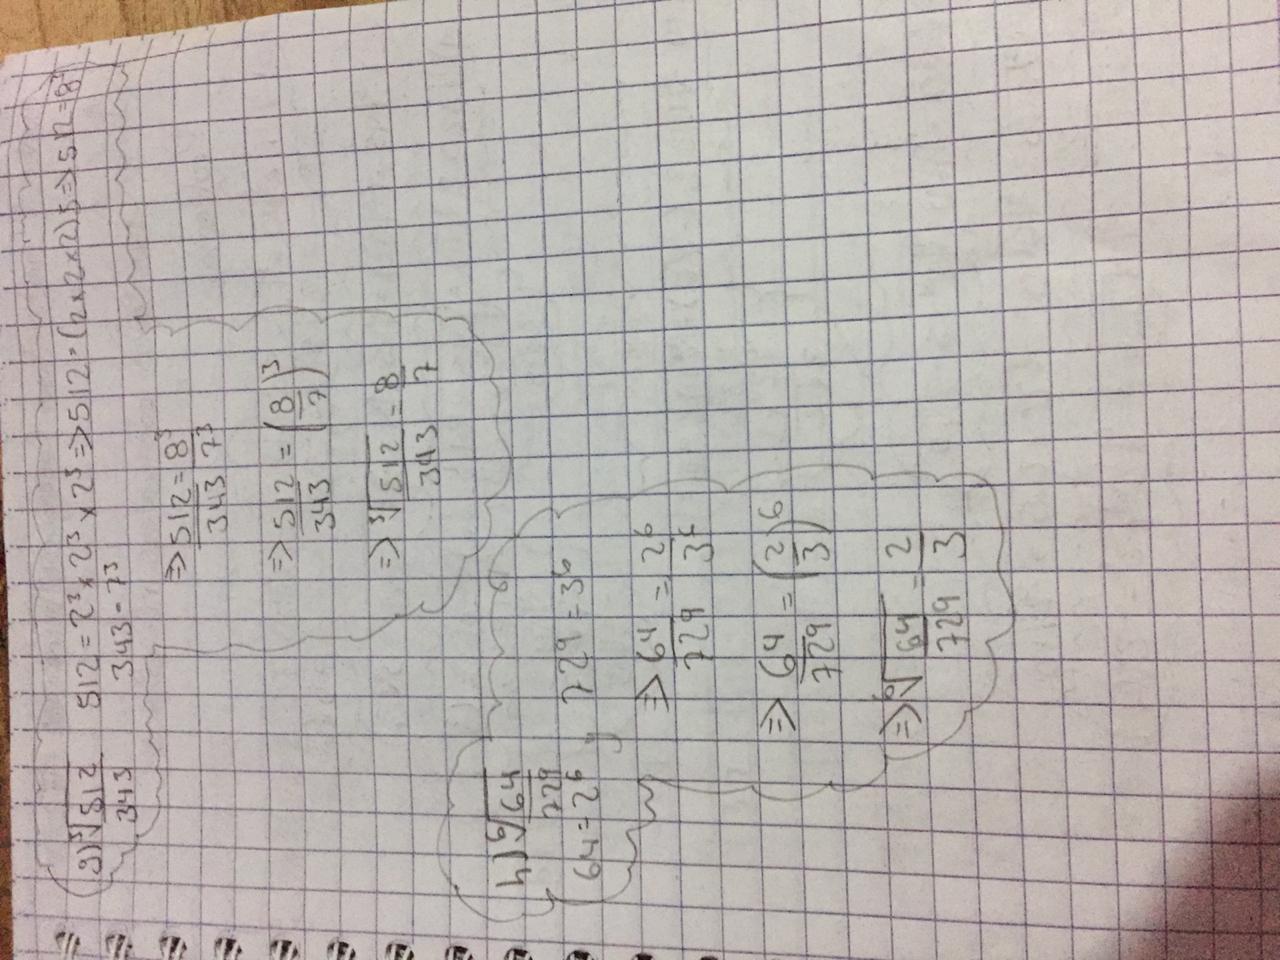 g) ³√512/343 512 = 2³ x 2³ x 2³ => 512 = (2x2x2)3 => 512 = 8³
343 = 7³
=> 512/343 = 8³/7³
=> 512/343 = (8/7)³
=> ³√512/343 = 8/7
h) ⁶√64/729
64 = 2⁶ , 729 = 3⁶
=> 64/729 = 2⁶/3⁶
=> 64/729 = (2/3)⁶
=> ⁶√64/729 = 2/3